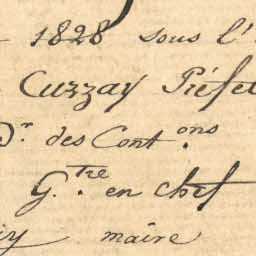 1828 sous l'
Cuzzay Préfet
Dr. des Cont.ons
G.tre en chef
maire